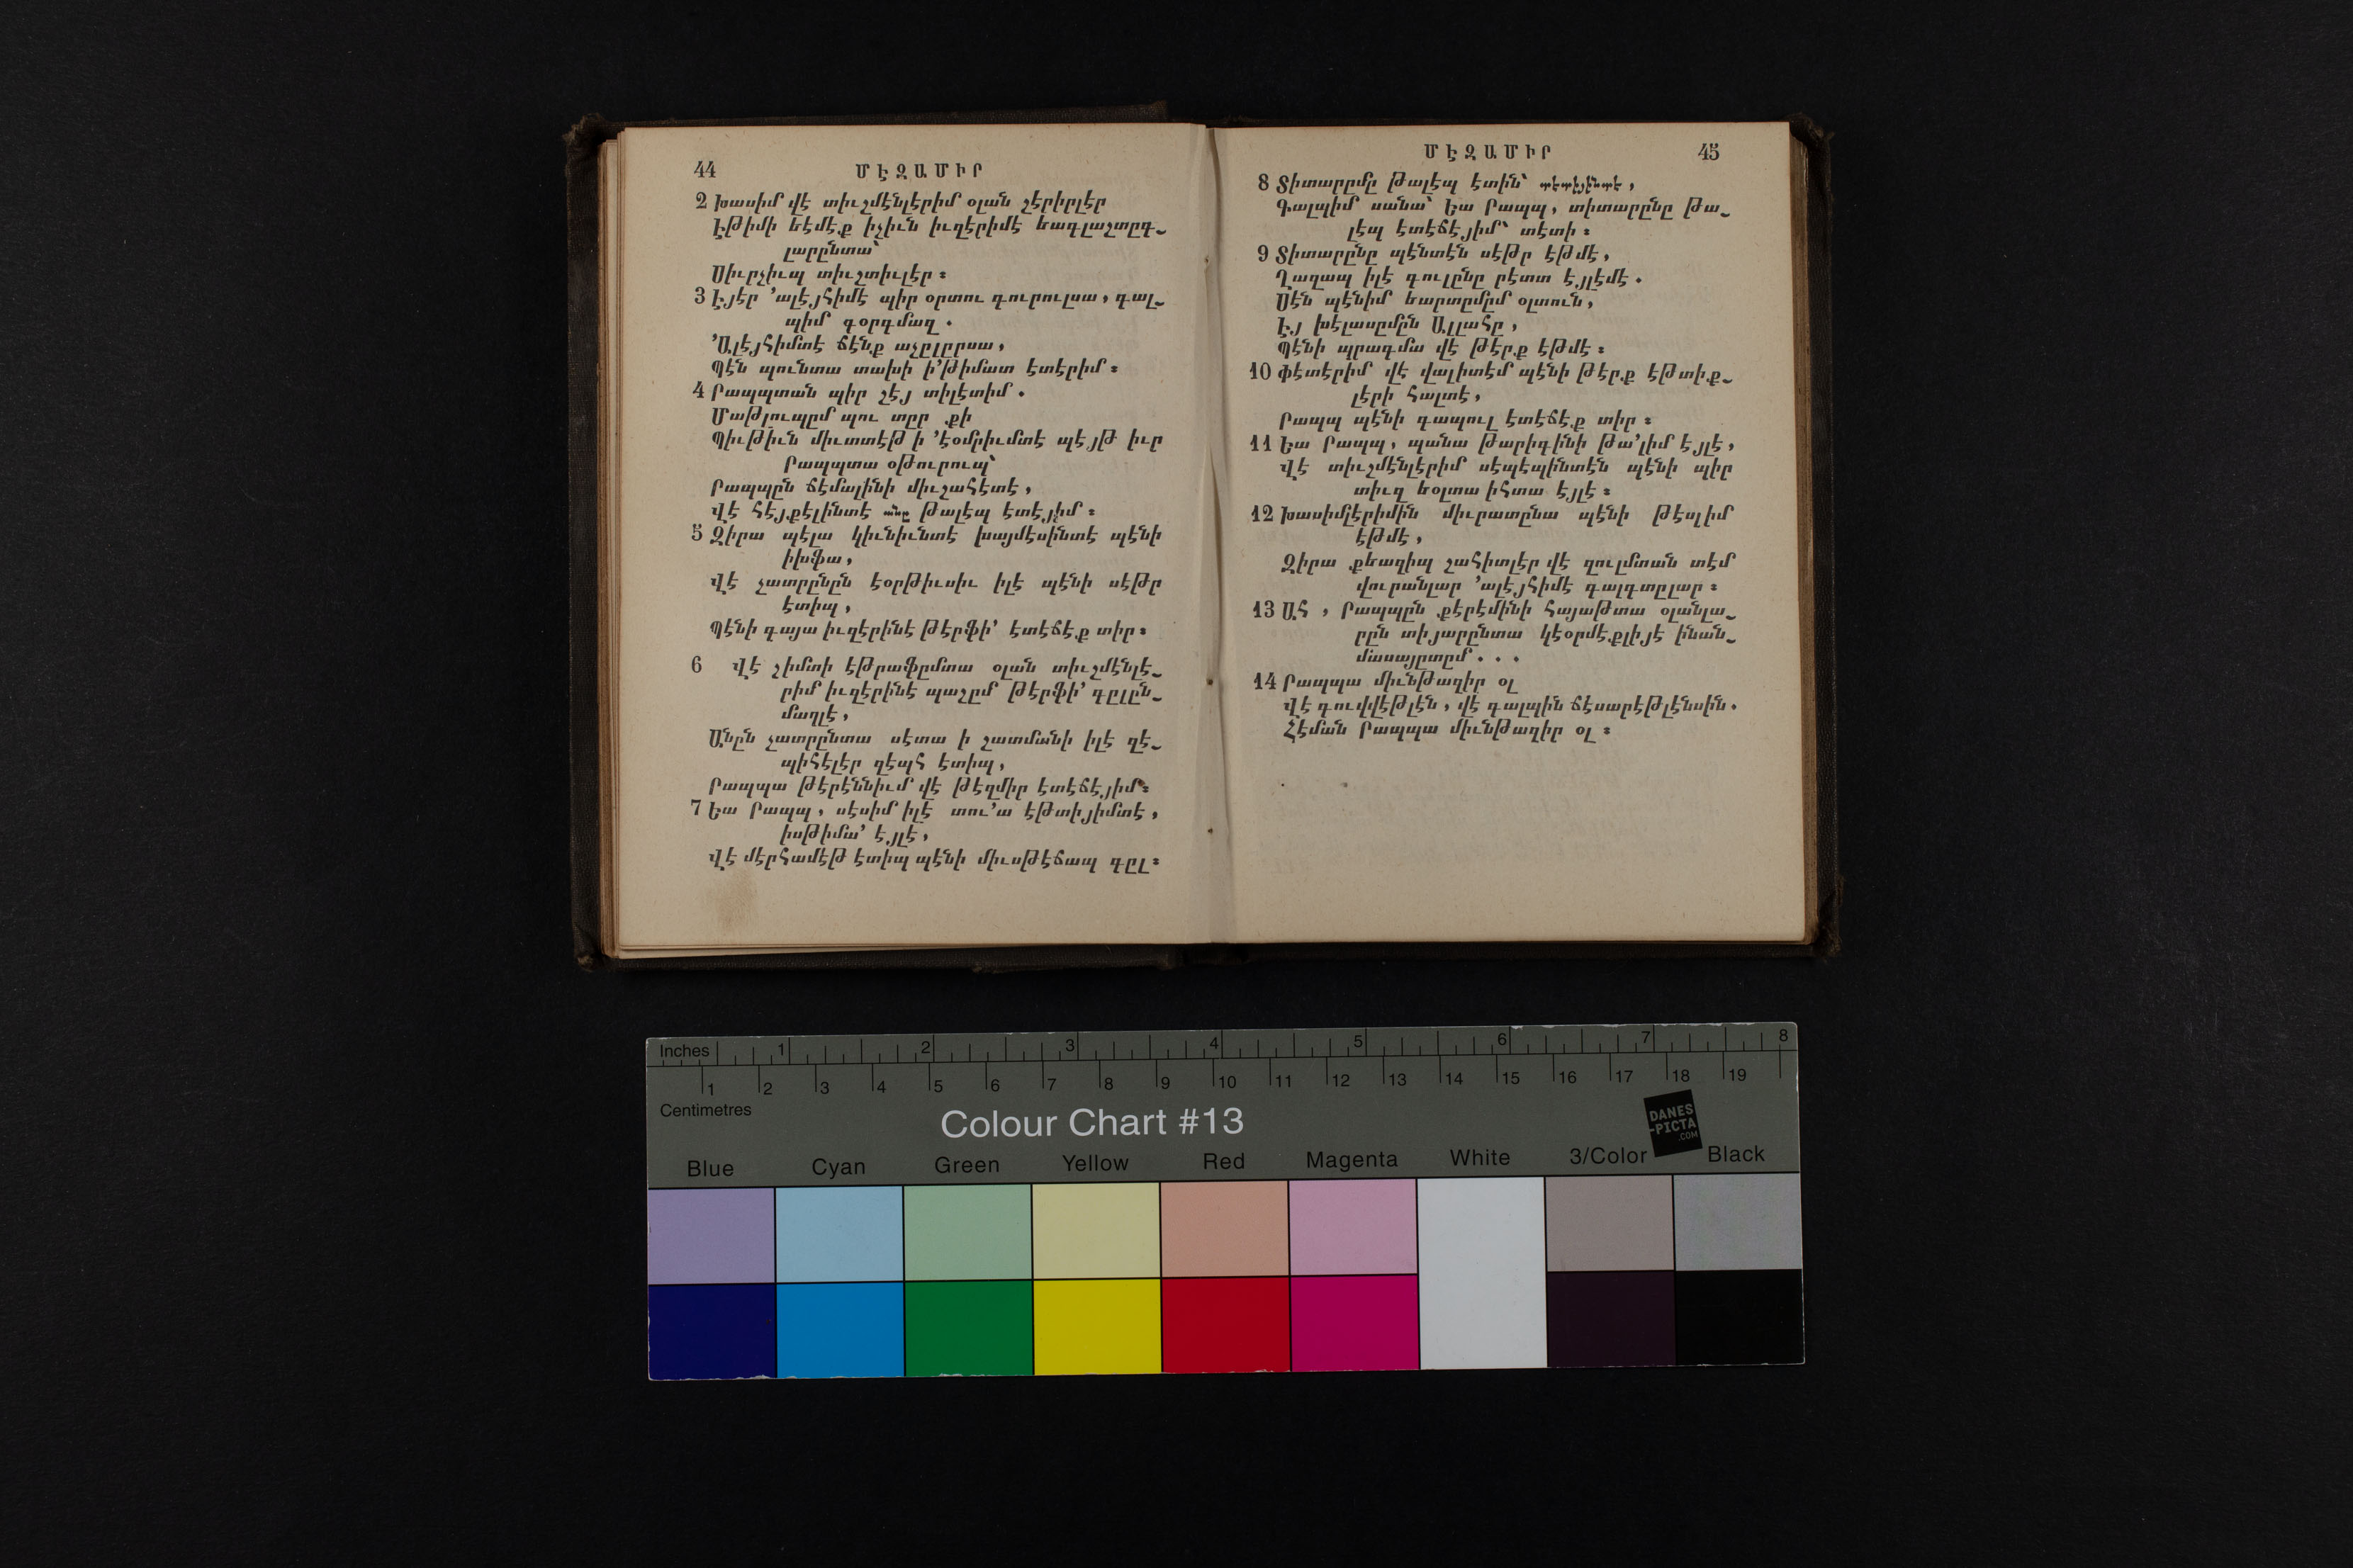 44 ՄԷԶԱՄԻՐ
2 Խասիմ վէ տիւշմէնլէրիմ օլան շէրիրլէր
Էթիմի եէմէ.ք իչիւն իւզէրիմէ եագլաշտըգ֊
լարընտա՝
Սիւրչիւպ տիւշտիւլէր։
3 Էյէր ՚ալէյհիմէ պիր օրտու գուրուլսա, գալ֊
պիմ գօրգմազ.
՚Ալէյհիմտէ ճէն.ք աչըլըրսա,
Պէն պունտա տախի ի՚թիմատ էտէրիմ։
4 Րապպտան պիր շէյ տիլէտիմ.
Մաթլուպըմ պու տըր .քի
Պիւթիւն միւտտէթ ի ՚էօմրիւմտէ պէյթ իւր
Րապպտա օթուրուպ՝
Րապպըն ճէմալինի միւշահէտէ,
Վէ հէյ.քէլինտէ անը թալէպ էտէյիմ։
5 Զիրա պէլա կիւնիւնտէ խայմէսինտէ պէնի
իխֆա,
Վէ չատըրընըն էօրթիւսիւ իլէ պէնի սէթր
էտիպ,
Պէնի գայա իւզէրինէ թէրֆի՚ էտէճէ.ք տիր։
6 Վէ շիմտի էթրաֆըմտա օլան տիւշմէնլէ֊
րիմ իւզէրինէ պաշըմ թէրֆի՚ գըլըն֊
մաղլէ,
Անըն չատըրընտա սէտա ի շատմանի իլէ զէ֊
պիհէլէր զէպհ էտիպ,
Րապպա թէրէննիւմ վէ թէզմիր էտէճէյիմ։
7 Եա Րապպ, սէսիմ իլէ տու՚ա էթտիյիմտէ,
իսթիմա՚ էյլէ,
Վէ մէրհամէթ էտիպ պէնի միւսթէճապ գըլ։
ՄԷԶԱՄԻՐ 45
8 Տիտարըմը թալէպ էտին՝ տէտիյինտէ,
Գալպիմ սանա՝ Եա Րապպ, տիտարընը թա֊
լէպ էտէճէյիմ՝ տէտի։
9 Տիտարընը պէնտէն սէթր էթմէ,
Ղաղապ իլէ գուլընը րէտտ էյլէմէ.
Սէն պէնիմ եարտըմըմ օլտուն,
Էյ խէլասըմըն Ալլահը,
Պէնի պրագմա վէ թէր.ք էթմէ։
10 Փէտէրիմ վէ վալիտէմ պէնի թէր.ք էթտի.ք֊
լէրի հալտէ,
Րապպ պէնի գապուլ էտէճէ.ք տիր։
11 Եա Րապպ, պանա թարիգինի թա՚լիմ էյլէ,
Վէ տիւշմէնլէրիմ սէպէպինտէն պէնի պիր
տիւզ եօլտա իհտա էյլէ։
12 Խասիմլէրիմին միւրատընա պէնի թէսլիմ
էթմէ,
Զիրա .քեազիպ շահիտլէր վէ զուլմտան տէմ
վուրանլար ՚ալէյհիմէ գալգտըլար։
13 Ահ, Րապպըն .քէրէմինի հայաթտա օլանլա֊
րըն տիյարընտա կէօրմէ.քլիյէ ինան֊
մասայըտըմ...
14 Րապպա միւնթազիր օլ
Վէ գուվվէթլէն, վէ գալպին ճէսարէթլէնսին.
Հէման Րապպա միւնթազիր օլ։
Inches 1 2 3 4 5 6 7 8
1 2 3 4 5 6 7 8 9 10 11 12 13 14 15 16 17 18 19
Centimetres
Colour Chart #13
DANES
-PICTA
.COM
Blue Cyan Green Yellow Red Magenta White 3/Color Black